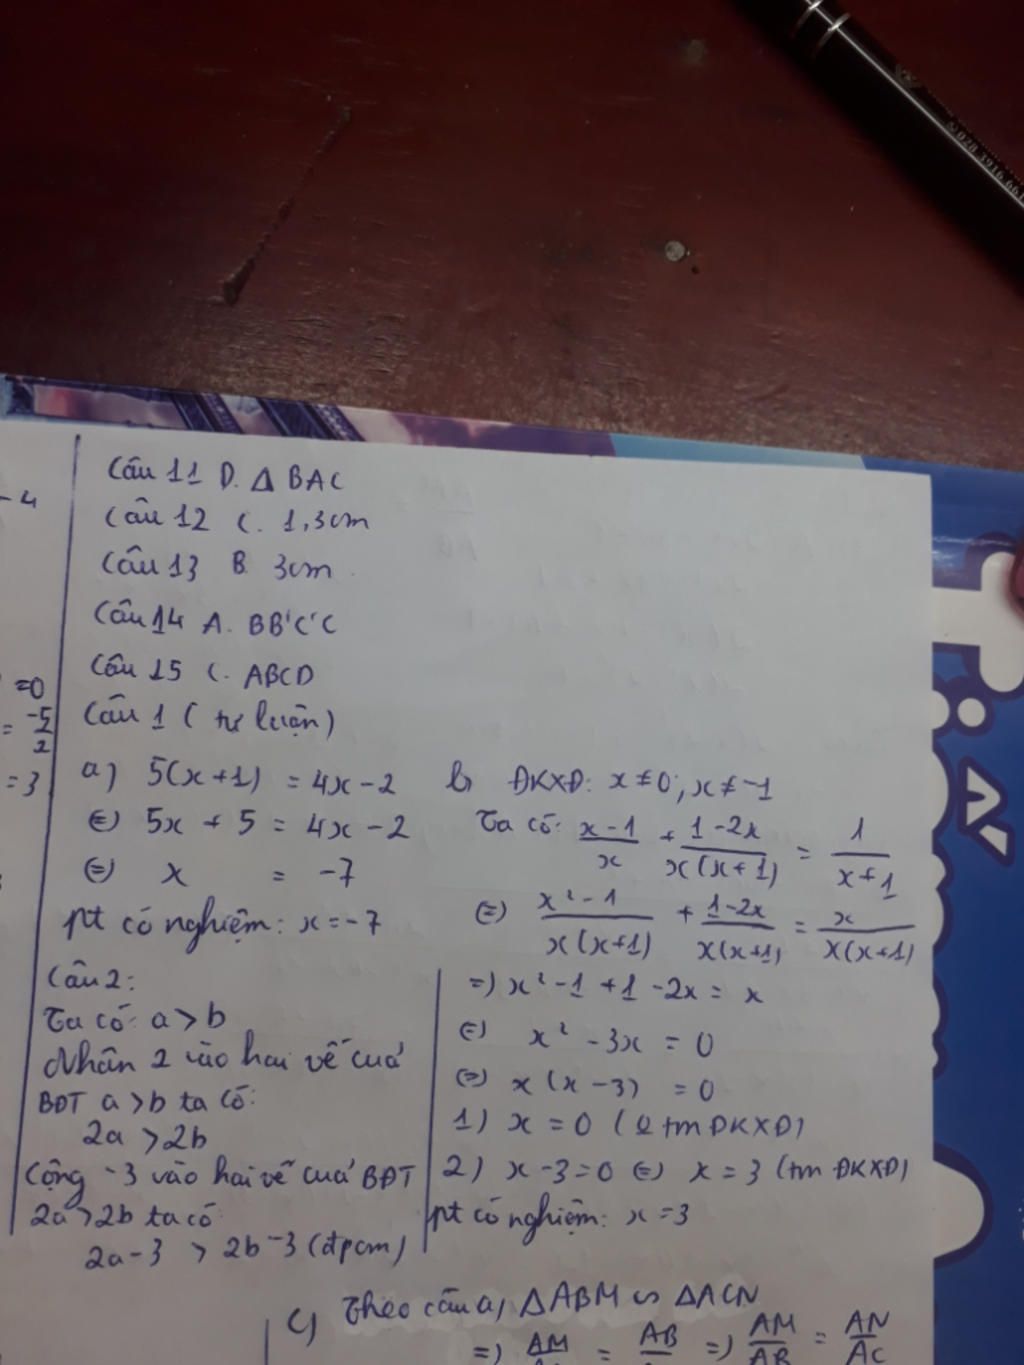 028 3916 661
- 4
=0
= -5/2
= 3
Câu 11 D. Δ BAC
Câu 12 C. 1,3cm
Câu 13 B. 3cm
Câu 14 A. BB'C'C
Câu 15 C. ABCD
Câu 1 ( tự luận)
a) 5(x+1) = 4x-2
⇔ 5x + 5 = 4x - 2
⇔ x = -7
pt có nghiệm: x = -7
b) ĐKXĐ: x≠0; x≠-1
Ta có: (x-1)/x + (1-2x)/(x(x+1)) = 1/(x+1)
⇔ (x²-1)/(x(x+1)) + (1-2x)/(x(x+1)) = x/(x(x+1))
=) x²-1+1-2x = x
⇔ x² - 3x = 0
⇔ x(x-3) = 0
1) x = 0 ( tm ĐKXĐ)
2) x-3=0 ⇔ x = 3 (tm ĐKXĐ)
pt có nghiệm: x = 3
Câu 2:
Ta có: a > b
Nhân 2 vào hai vế cuả
BĐT a > b ta có:
2a > 2b
Cộng -3 vào hai vế cuả BĐT
2a > 2b ta có
2a-3 > 2b-3 (đpcm)
c) Theo câu a, ΔABM ∽ ΔACN
=) AM = AB =) AM/AB = AN/AC